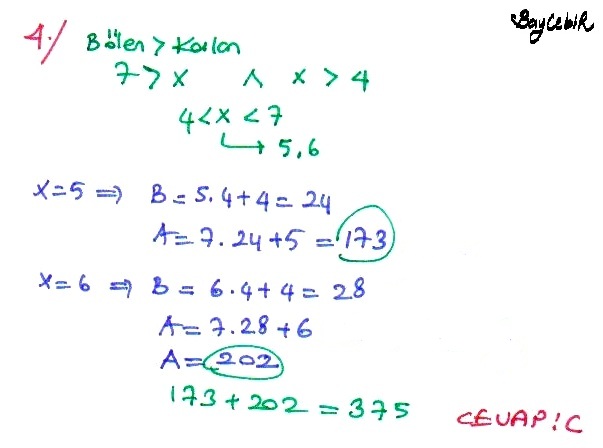 BayCebiR
4./ Bölen > Kalan
7 > x ∧ x > 4
4 < x < 7
5, 6
x = 5 ⇒ B = 5.4 + 4 = 24
A = 7.24 + 5 = 173
x = 6 ⇒ B = 6.4 + 4 = 28
A = 7.28 + 6
A = 202
173 + 202 = 375
CEVAP: C